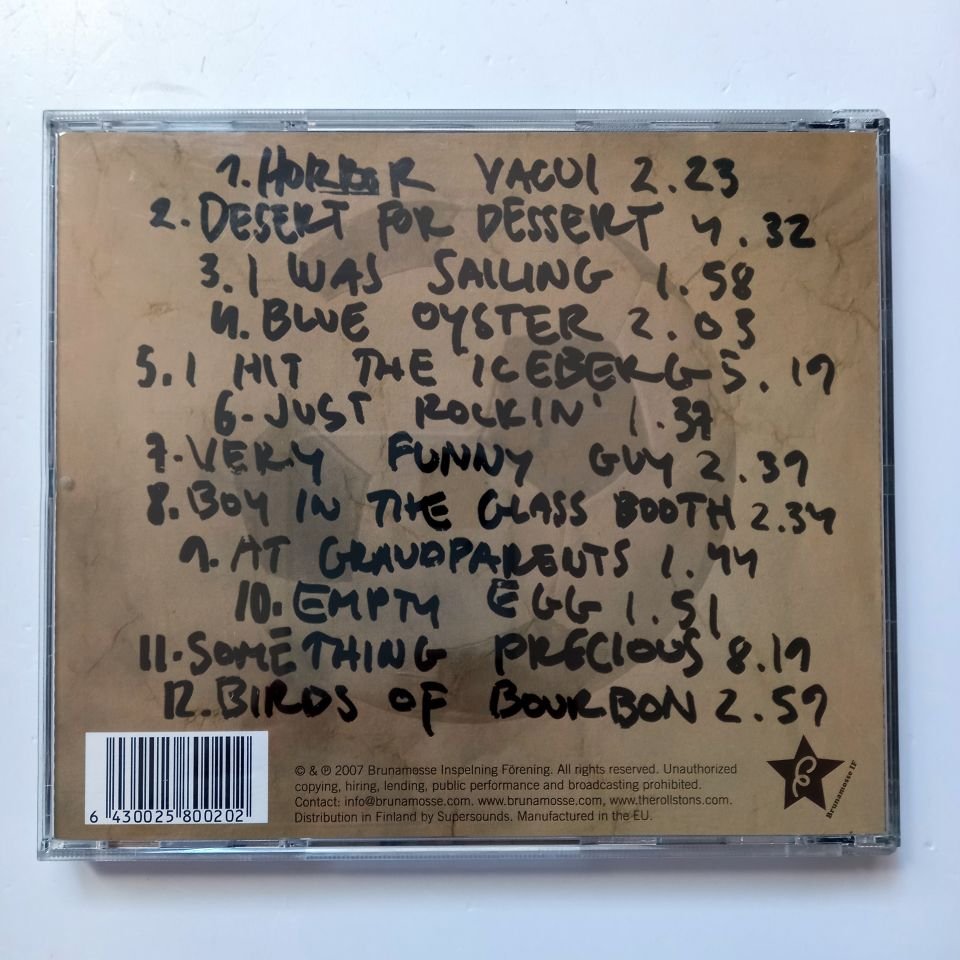 1. HORROR VACUI 2.23
2. DESERT FOR DESSERT 4.32
3. I WAS SAILING 1.58
4. BLUE OYSTER 2.03
5. I HIT THE ICEBERG 5.19
6. JUST ROCKIN' 1.37
7. VERY FUNNY GUY 2.39
8. BOY IN THE GLASS BOOTH 2.34
9. AT GRANDPARENTS 1.44
10. EMPTY EGG 1.51
11. SOMETHING PRECIOUS 8.19
12. BIRDS OF BOURBON 2.59
© & ℗ 2007 Brunamosse Inspelning Förening. All rights reserved. Unauthorized
copying, hiring, lending, public performance and broadcasting prohibited.
Contact: info@brunamosse.com. www.brunamosse.com, www.therollstons.com.
Distribution in Finland by Supersounds. Manufactured in the EU.
6 430025 800202
Brunamosse IF